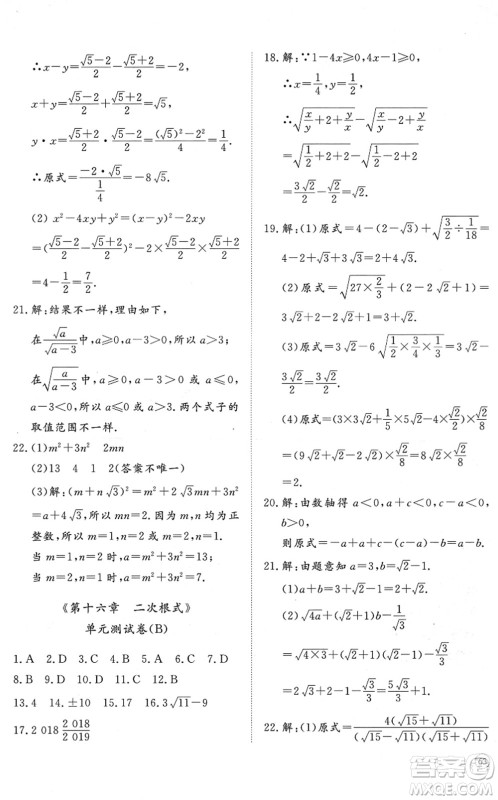 ∴x－y＝(√5－2)/2－(√5＋2)/2＝－2,
x＋y＝(√5－2)/2＋(√5＋2)/2＝√5,
y·x＝(√5＋2)/2×(√5－2)/2＝((√5)²－2²)/4＝1/4.
∴原式＝(－2·√5)/(1/4)＝－8√5.
(2) x²－4xy＋y²＝(x－y)²－2xy
＝((√5－2)/2－(√5＋2)/2)²－2×(√5－2)/2×(√5＋2)/2
＝4－1/2＝7/2.
21.解:结果不一样,理由如下,
在√a/√(a－3)中,a≥0,a－3>0,所以a>3;
在√(a/(a－3))中,a≥0,a－3>0或a≤0,
a－3<0,所以a>3或a≤0,两个式子的
取值范围不一样.
22.(1)m²＋3n² 2mn
(2)13 4 1 2(答案不唯一)
(3)解:(m＋n√3)²＝m²＋3n²＋2mn√3
＝a＋4√3,所以mn＝2,因为m,n均为正
整数,所以m＝1,n＝2或m＝2,n＝1.
当m＝1,n＝2时,a＝m²＋3n²＝13;
当m＝2,n＝1时,a＝m²＋3n²＝7.
《第十六章 二次根式》
单元测试卷(B)
1.A 2.D 3.C 4.A 5.D 6.A 7.D
8.A 9.D 10.B 11.A 12.B
13.4 14.±10 15.2 16.3√11－9
17.2 018 2 018/2 019
18.解:∵1－4x≥0,4x－1≥0,
∴x＝1/4,y＝1/2,
∴√(x/y＋2＋y/x)－√(x/y－2＋y/x)
＝√(1/2＋2＋2)－√(1/2－2＋2)＝
3√2/2－√2/2＝√2.
19.解:(1)原式＝4－(2－√3)＋√(3/2÷1/18)＝
4－2＋√3＋3√3＝2＋4√3.
(2)原式＝√(27×2/3)＋(2－√2＋1)＝
3√2－√2＋3＝2√2＋3.
(3)原式＝3√2－6√(1/2×3/4×1/3)＝3√2－
3√2/2＝3√2/2.
(4)原式＝(3×3√2＋1/5×5√2－4×√2/2)×
√2/8＝(9√2＋√2－2√2)×√2/8＝8√2×√2/8
＝2.
20.解:由数轴得a<0,a＋b<0,a－b<0,
b>0,
则原式＝－a＋a＋b－a＋b－b＝b－a.
21.解:由题意知a＝3,b＝√3－1,
(1)(a＋b)(a－b)＝(3＋√3－1)(3－
√3＋1)＝(2＋√3)(4－√3)＝5＋2√3.
(2)√(4a)＋1/(b＋1)＝√(4×3)＋1/(√3－1＋1)
＝√(4×3)＋1/√3＝2√3＋√3/3＝5√3/3＝
5/3√3.
22.解:(1)原式＝4(√15＋√11)/((√15－√11)(√15＋√11))
答案圈
163